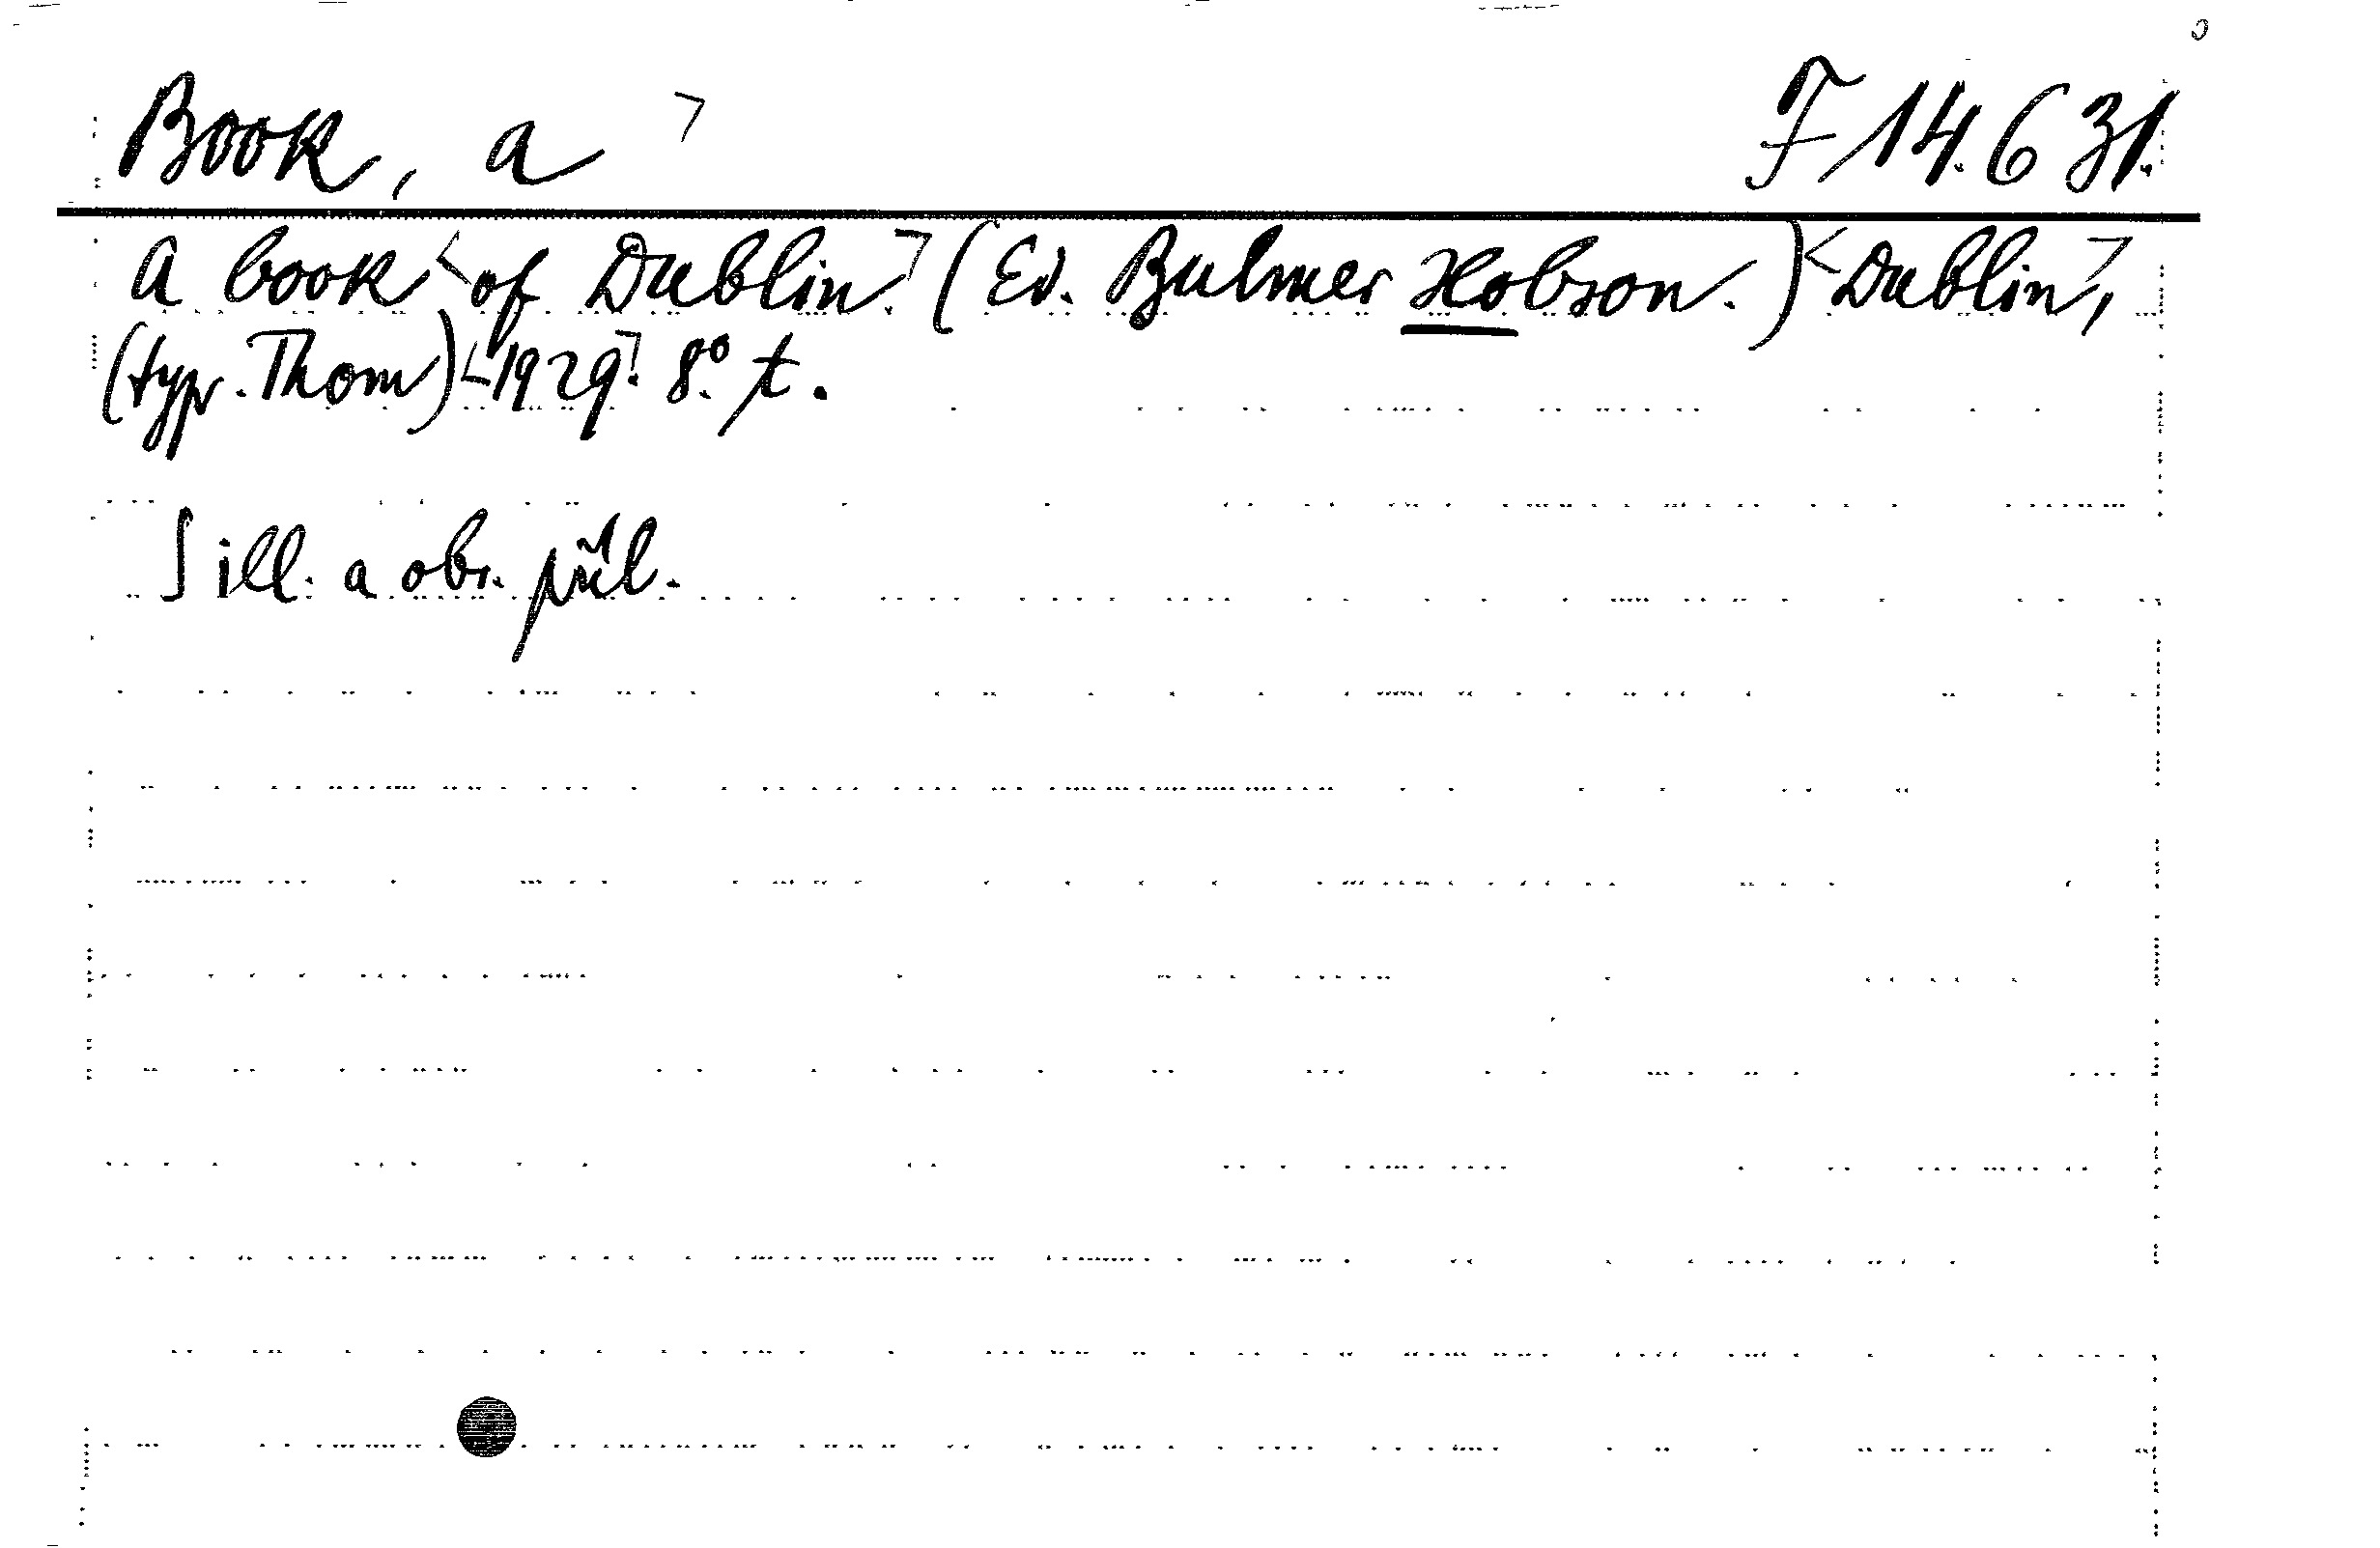 Book, a ⌝ F 14.631.
A book < of Dublin.⌝ (Ed. Bulmer Hobson.) < Dublin⌝,
(typ. Thom) ∟1929⌝. 8° t.
S ill. a obr. příl.